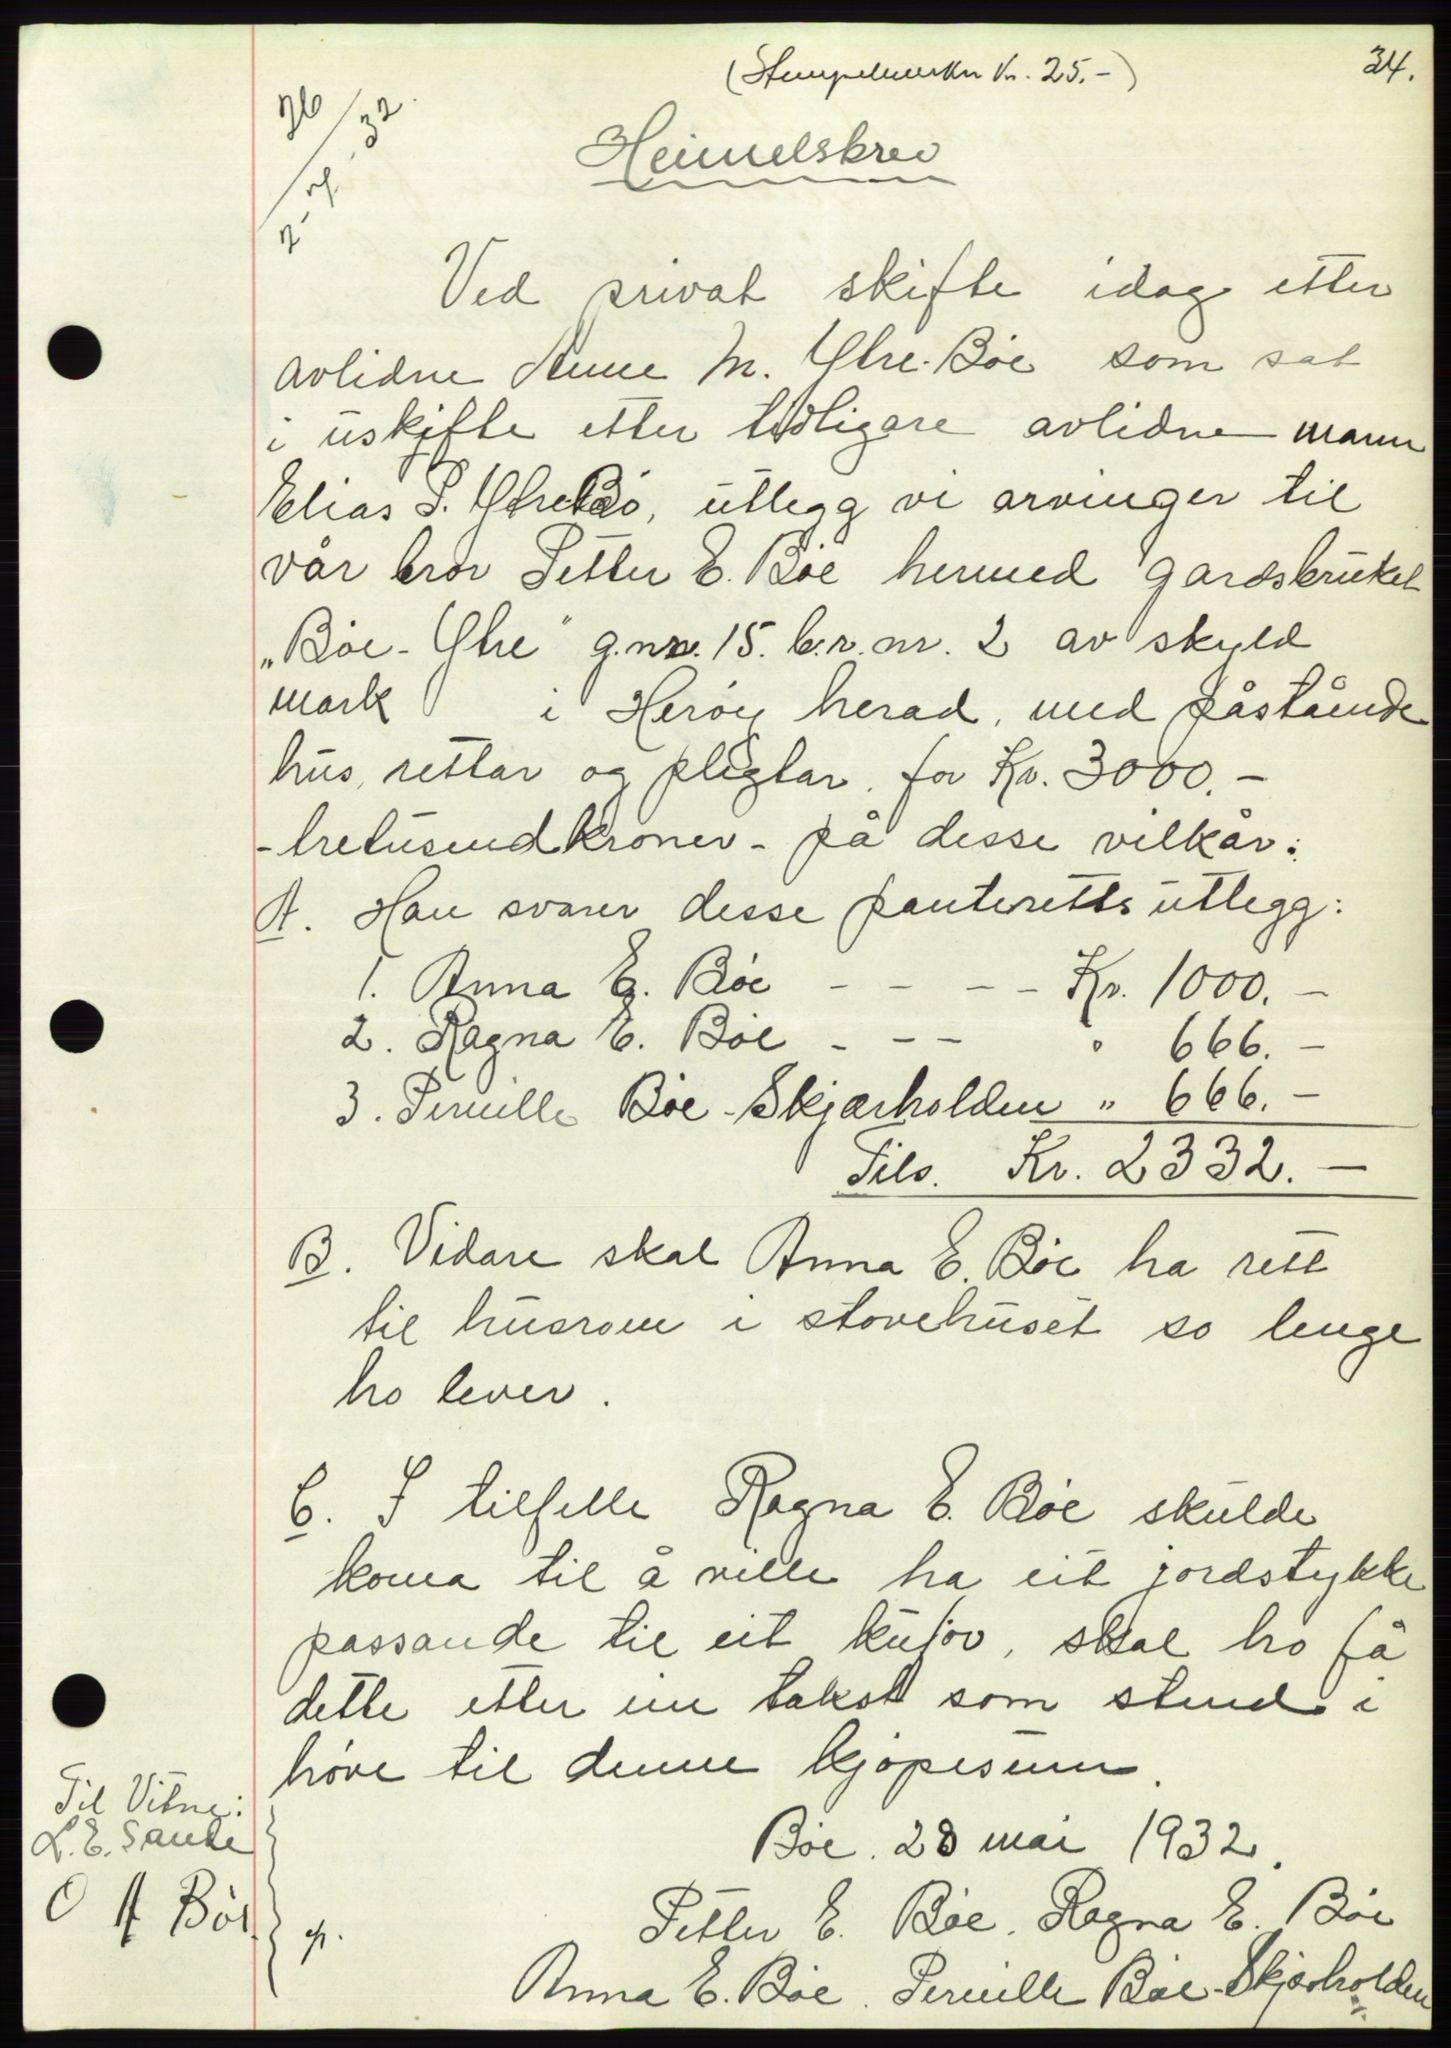 (Stempelmerker Kr. 25.-)
34.
26/7-32.
Heimelsbrev
Ved privat skifte idag etter
avlidne Anne M. Ytre-Bøe som sat
i uskifte etter tidligare avlidne mann
Elias P. Ytrebø, utlegg vi arvinger til
vår bror Petter E. Bøe hermed gardsbruket
„Bøe-Ytre" g.nr. 15. b.r.nr. 2 av skyld
mark i Herøy herad, med påståande
hus, rettar og pligtar, for Kr. 3000.-
- tretusendkroner - på desse vilkår:
A. Han svarer desse panteretts utlegg:
1. Anna E. Bøe - - - - Kr. 1000.-
2. Ragna E. Bøe - - - " 666.-
3. Pernille Bøe-Skjærholden " 666.-
Tils. Kr. 2332.-
B. Vidare skal Anna E. Bøe ha rett
til husrom i stovehuset so lenge
ho lever.
C. I tilfelle Ragna E. Bøe skulde
koma til å ville ha eit jordstykke
passande til eit kufor, skal ho få
dette etter ein takst som stend i
høve til denne kjøpesum.
Bøe. 28 mai 1932.
Petter E. Bøe. Ragna E. Bøe
Anna E. Bøe. Pernille Bøe-Skjærholden
Til Vitne:
L. E. Sande
O A Bøe